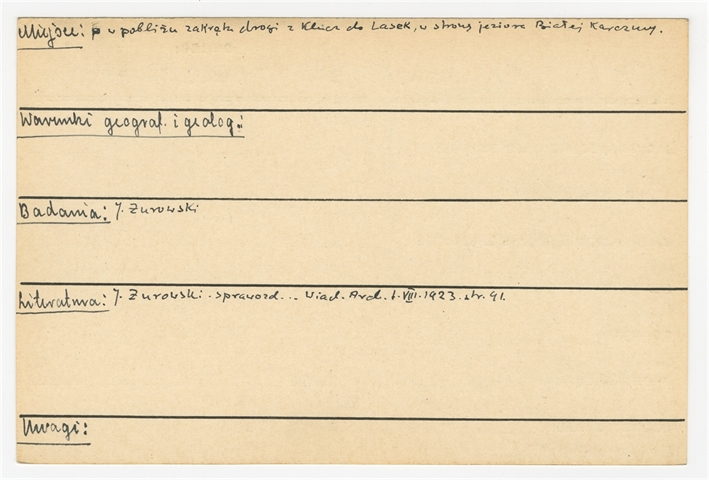 Miejsce: w pobliżu zakrętu drogi z Klucz do Lasek, w stronę jeziora Białej Karczmy.
Warunki geograf. i geolog.:
Badania: J. Żurowski
Literatura: J. Żurowski. sprawozd... Wiad. Arch. t. VIII. 1923. str. 91.
Uwagi: